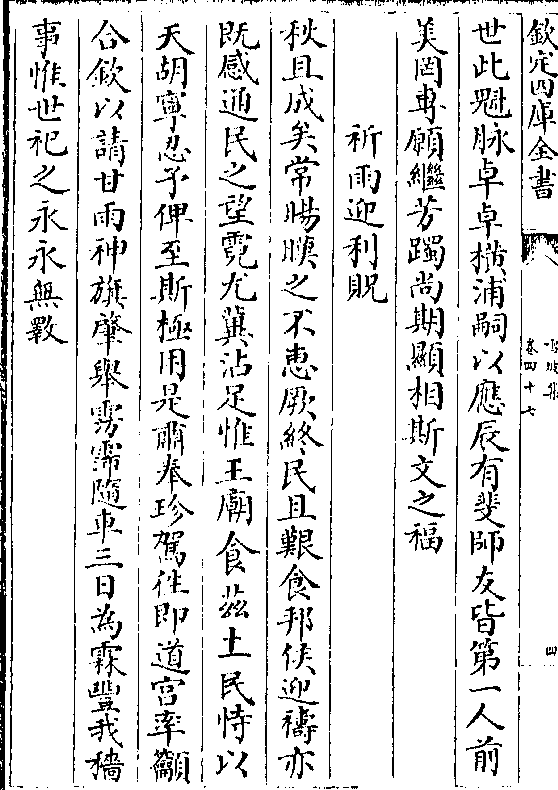 欽定四庫全書
卷四十七
四
世此魁脉卓卓橫浦嗣以應辰有斐師友皆第一人前
美罔專願繼芳躅尚期顯相斯文之福
祈雨迎利貺
秋且成矣常暘暵之不惠厥終民且艱食邦侯迎禱亦
既感通民之望霓尤冀沾足惟王廟食茲土民恃以
天胡寧忍予俾至斯極用是肅奉珍駕往即道宮率籲
合欽以請甘雨神旗肇舉雱霈隨車三日為霖豐我穡
事惟世祀之永永無斁